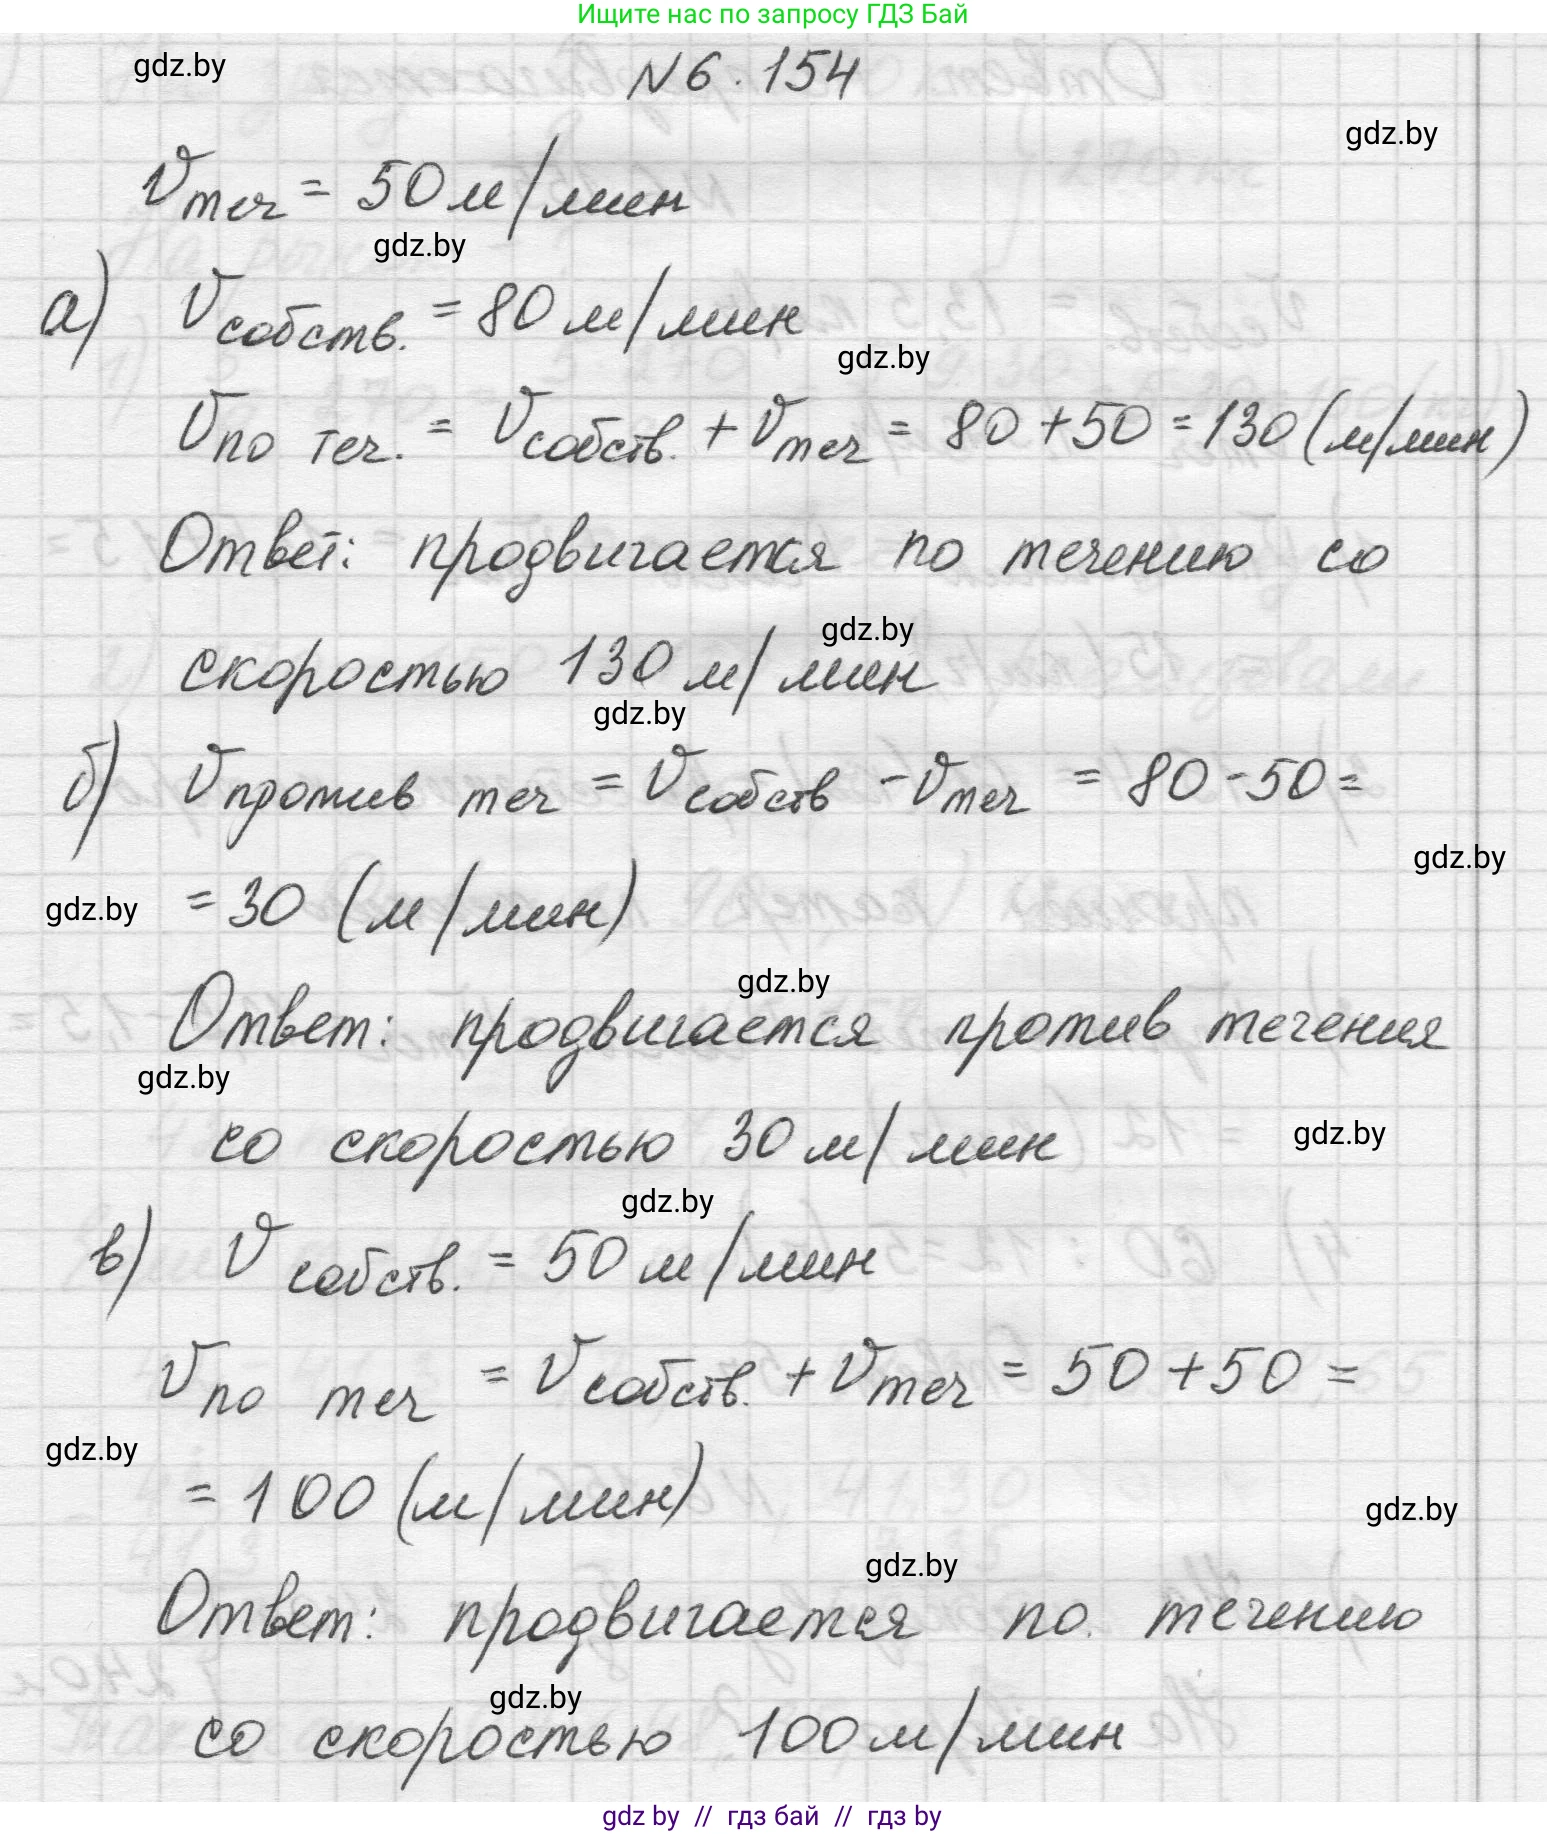 Ищите нас по запросу ГДЗ Бай
gdz.by
N 6.154
gdz.by
Vтеч = 50 м/мин
gdz.by
а) Vсобств. = 80 м/мин
gdz.by
Vпо теч. = Vсобств. + Vтеч = 80 + 50 = 130 (м/мин)
Ответ: продвигается по течению со
gdz.by
скоростью 130 м/мин
gdz.by
б) Vпротив теч = Vсобств - Vтеч = 80 - 50 =
gdz.by
gdz.by
= 30 (м/мин)
gdz.by
Ответ: продвигается против течения
gdz.by
со скоростью 30 м/мин
gdz.by
gdz.by
в) Vсобств. = 50 м/мин
Vпо теч = Vсобств. + Vтеч = 50 + 50 =
gdz.by
= 100 (м/мин)
gdz.by
gdz.by
Ответ: продвигается по течению
gdz.by
со скоростью 100 м/мин
gdz by // гдз бай // гдз by